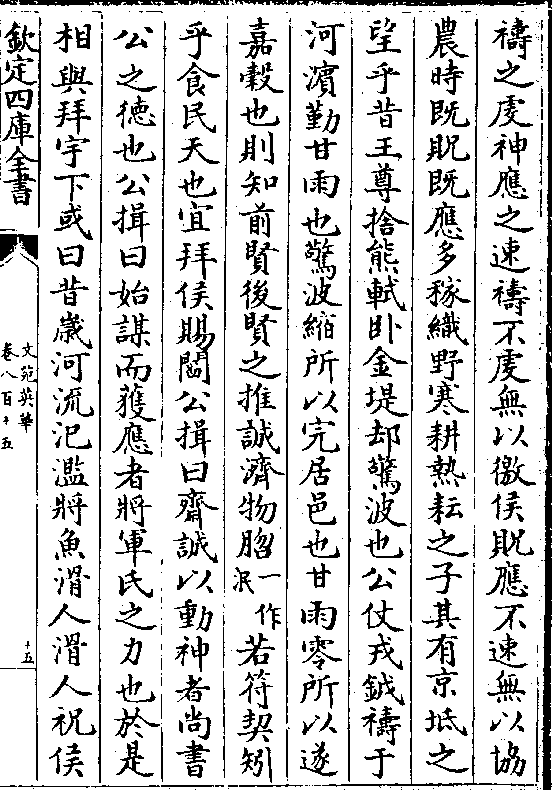 禱之虔神應之速禱不虔無以徼侯貺應不速無以協
農時既貺既應多稼織野寒耕熱耘之子其有京坻之
望乎昔王尊捨熊軾卧金堤却驚波也公仗戎鉞禱于
河濱勤甘雨也驚波縮所以完居邑也甘雨零所以遂
嘉穀也則知前賢後賢之推誠濟物脗一作泯若符契矧
乎食民天也宜拜侯賜閽公揖曰齋誠以動神者尚書
公之德也公揖曰始謀而獲應者將軍氏之力也於是
相與拜宇下或曰昔歲河流氾濫將魚滑人滑人祝侯
欽定四庫全書
文苑英華
卷八百十五
十五